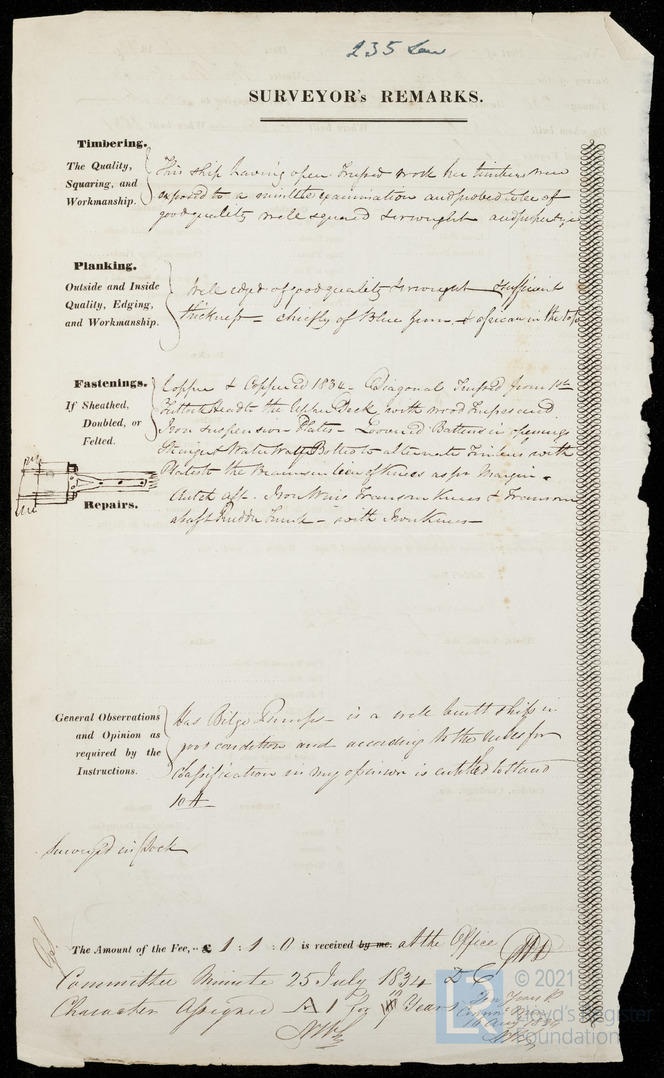 235 Lon
SURVEYOR's REMARKS.
Timbering.
The Quality,
Squaring, and
Workmanship.
This ship having open work her timbers were
exposed to a minute examination and proved to be of
good quality well squared & wrought and
Planking.
Outside and Inside
Quality, Edging,
and Workmanship.
Well edged of good quality & wrought sufficient
thickness - chiefly of Blue Gum & African in the tops
Fastenings.
If Sheathed,
Doubled, or
Felted.
Copper & Coppered 1834 - Diagonal Trussed from 1st
Futtock Heads to the Upper Deck with wood Trusses and
Iron Suspension Plates - Battens in openings
Waterways Bolted to alternate Timbers with
Plates to the Beams in lieu of Knees as per Margin
Repairs.
aft - Iron Transom Knees & Transom
abaft Rudder Trunk - with Iron Knees -
General Observations
and Opinion as
required by the
Instructions.
Has Bilge Pumps - is a well built ship in
good condition and according to the rules for
Classification in my opinion is entitled to stand
10 A
Surveyed in Dock
The Amount of the Fee,.. £ 1 : 1 : 0 is received by me. at the Office
Committee Minute 25 July 1834
Character Assigned A 1 for Years
© 2021
Lloyd's Register
Foundation